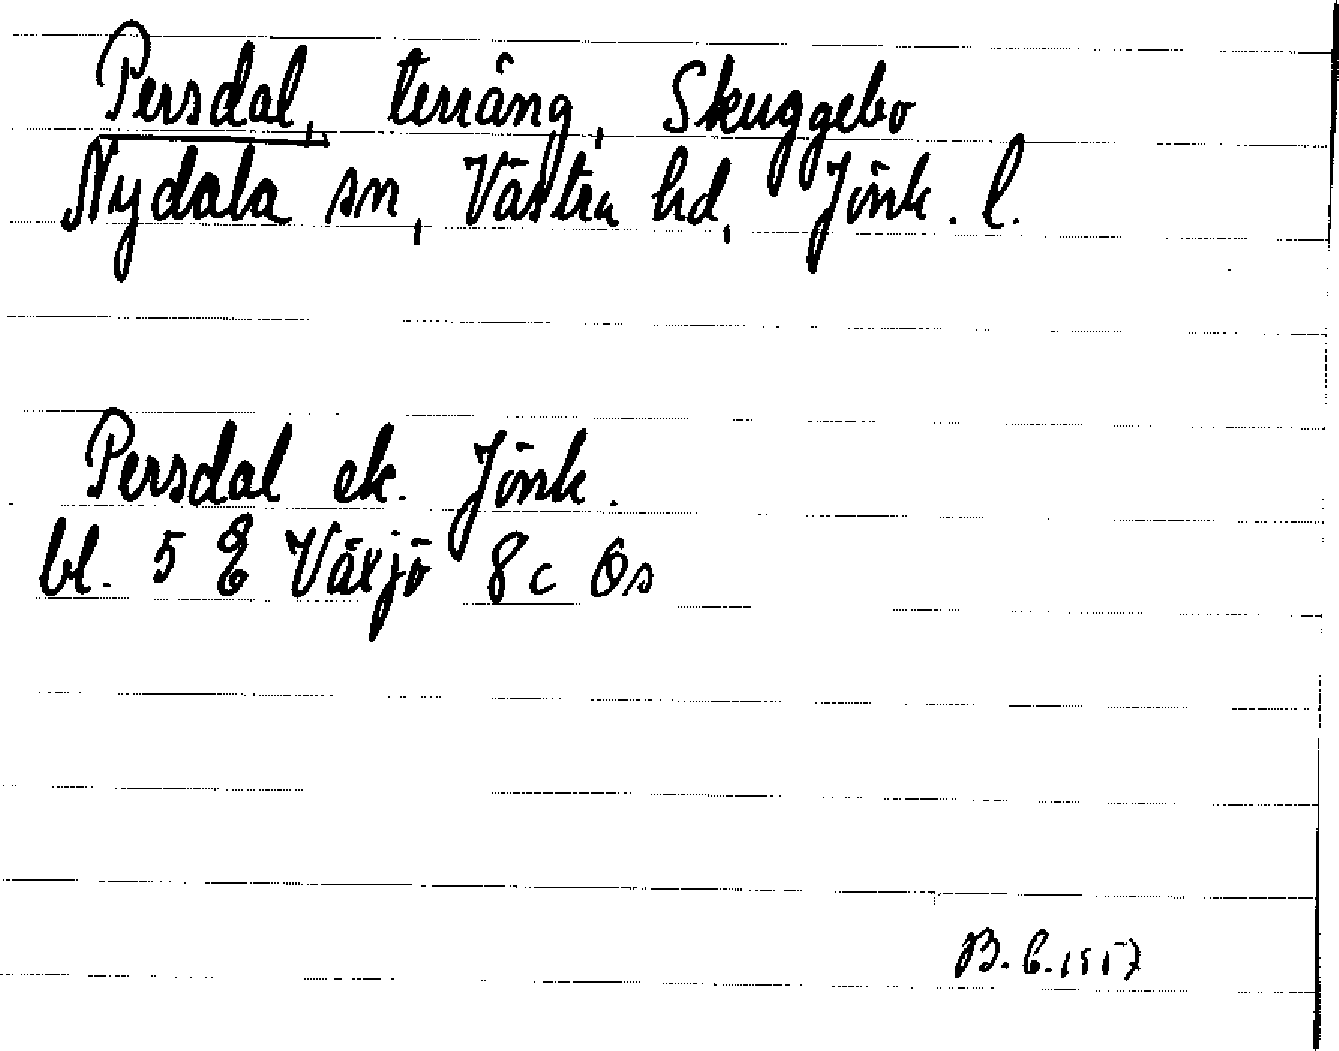 Persdal, terräng, Skuggebo
Nydala sn, Västra hd, Jönk. l.
Persdal ek. Jönk.
bl. 5 E Växjö 8c Ös
B. E. 1957